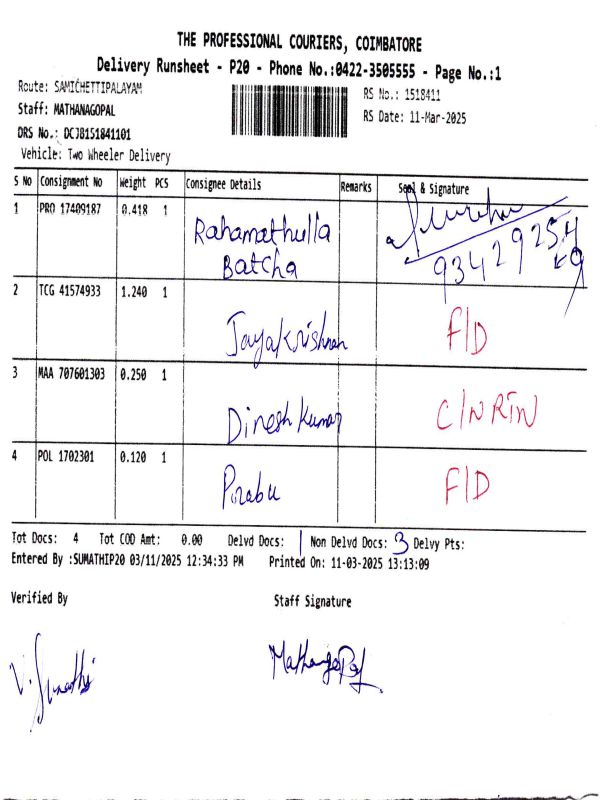 THE PROFESSIONAL COURIERS, COIMBATORE
Delivery Runsheet - P20 - Phone No.:0422-3505555 - Page No.:1
Route: SAMICHETTIPALAYAM
RS No.: 1518411
Staff: MATHANAGOPAL
RS Date: 11-Mar-2025
DRS No.: DCJB151841101
Vehicle: Two Wheeler Delivery
S No Consignment No Weight PCS Consignee Details Remarks Seal & Signature
1 PRO 17409187 0.418 1 Rahamathulla
Batcha
2 TCG 41574933 1.240 1 Jayakrishnan F/D
3 MAA 707601303 0.250 1 Dinesh Kumar C/N RTN
4 POL 1702301 0.120 1 Pirabu F/D
Tot Docs: 4 Tot COD Amt: 0.00 Delvd Docs: 1 Non Delvd Docs: 3 Delvy Pts:
Entered By :SUMATHIP20 03/11/2025 12:34:33 PM Printed On: 11-03-2025 13:13:09
Verified By Staff Signature
V. Sumathi